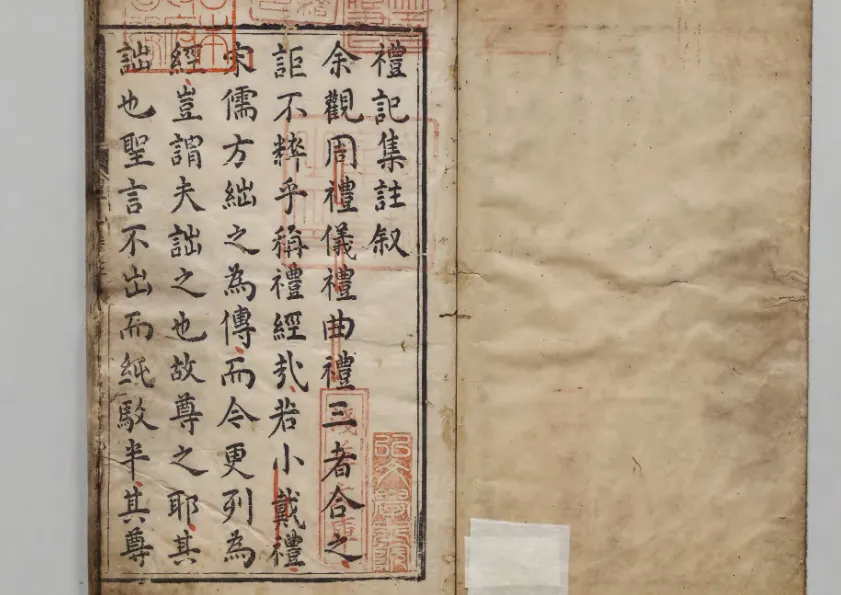 禮記集註叙
余觀周禮儀禮曲禮三者合之
詎不粹乎稱禮經㢤若小戴禮
宋儒方絀之為傳而令更列為
經豈謂夫詘之也故尊之耶其
詘也聖言不出而純駁半其尊